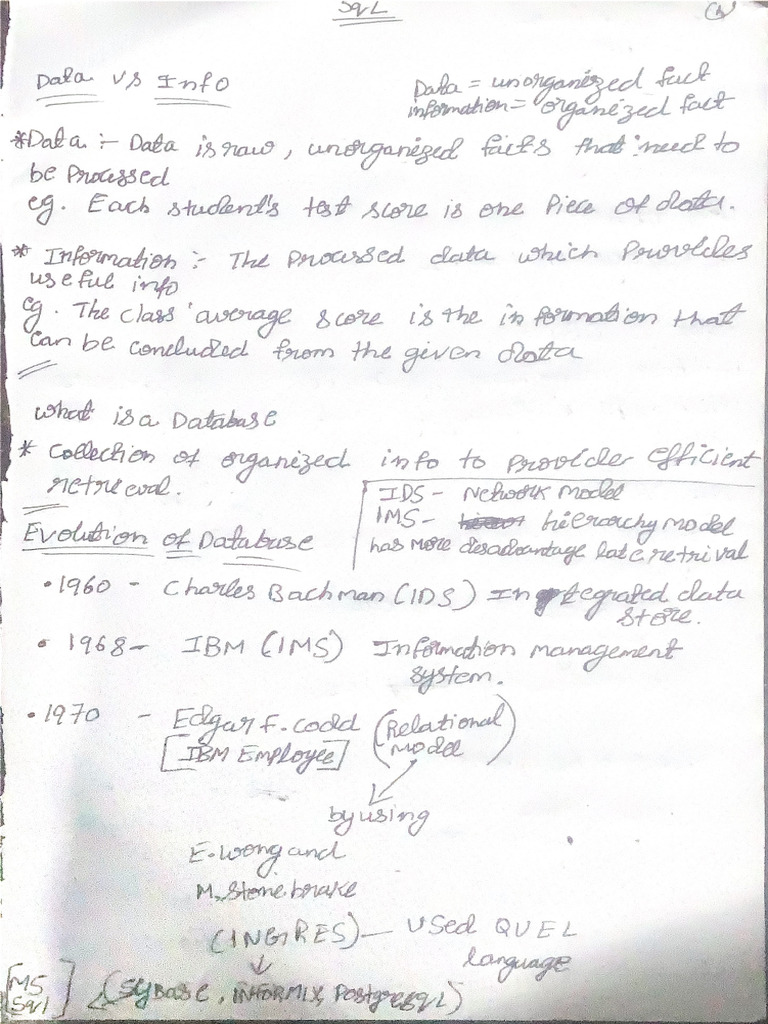 SqL
Data vs Info
Data = unorganized fact
information = organized fact
*Data :- Data is raw, unorganized facts that need to
be Processed
eg. Each student's test score is one Piece of data.
* Information :- The Processed data which Provides
useful info
eg. The class average score is the information that
can be concluded from the given data
what is a Database
* Collection of organized info to Provider efficient
retrieval.
IDS - Network Model
IMS - hierarchy model
has more disadvantage late retrival
Evolution of Database
• 1960 - Charles Bachman (IDS) Integrated data
store.
• 1968 - IBM (IMS) Information management
system.
• 1970 - Edgar F. codd (Relational
Model)
[IBM Employee]
by using
E. wong and
M. Stonebrake
(INGRES) — Used QUEL
language
(SYBASE, INFORMIX, PostgreSQL)
[MS
Sql]